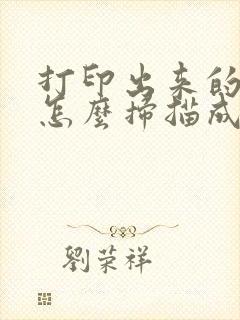 打印出来的
怎麼掃描成
劉荣祥